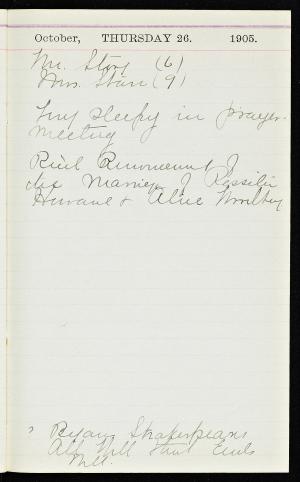 October, THURSDAY 26. 1905.
Mr. Story (6)
Mrs. Starr (9)
sleepy in prayer-
meeting
Rec'd Announcement of
the Marriage of
Howard & Alice
? Began Shakespeare
All's Well that Ends
Well.